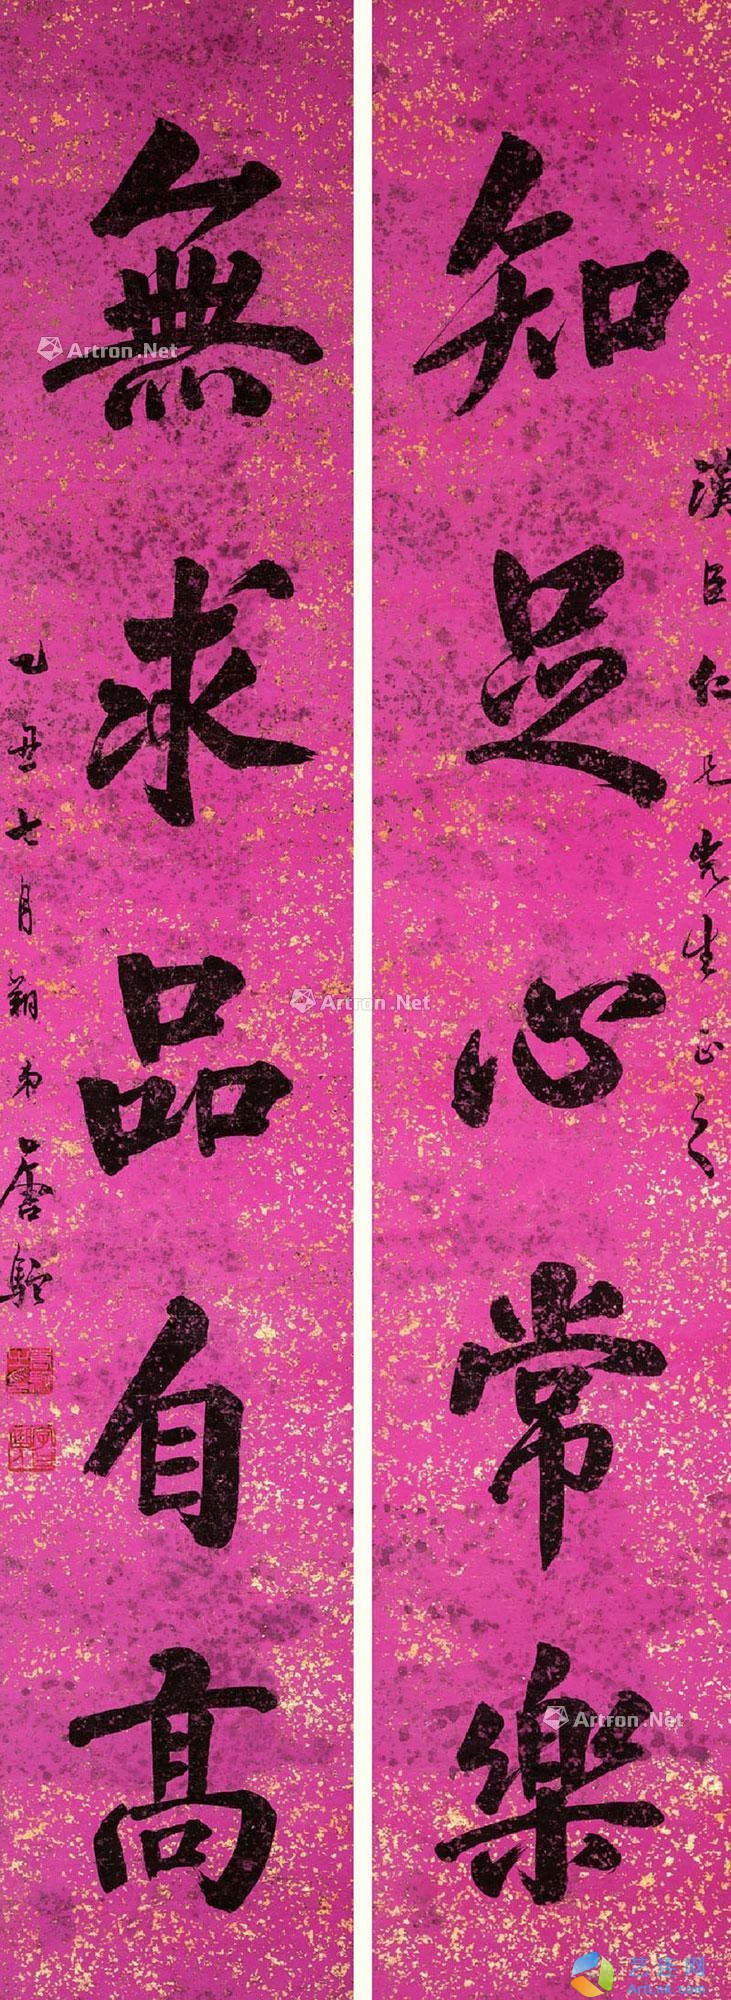 漢臣仁兄先生正之
知足心常樂
無求品自高
乙丑七月朔弟唐駝
Artron.Net
Artron.Net
Artron.Net
Artlink.com